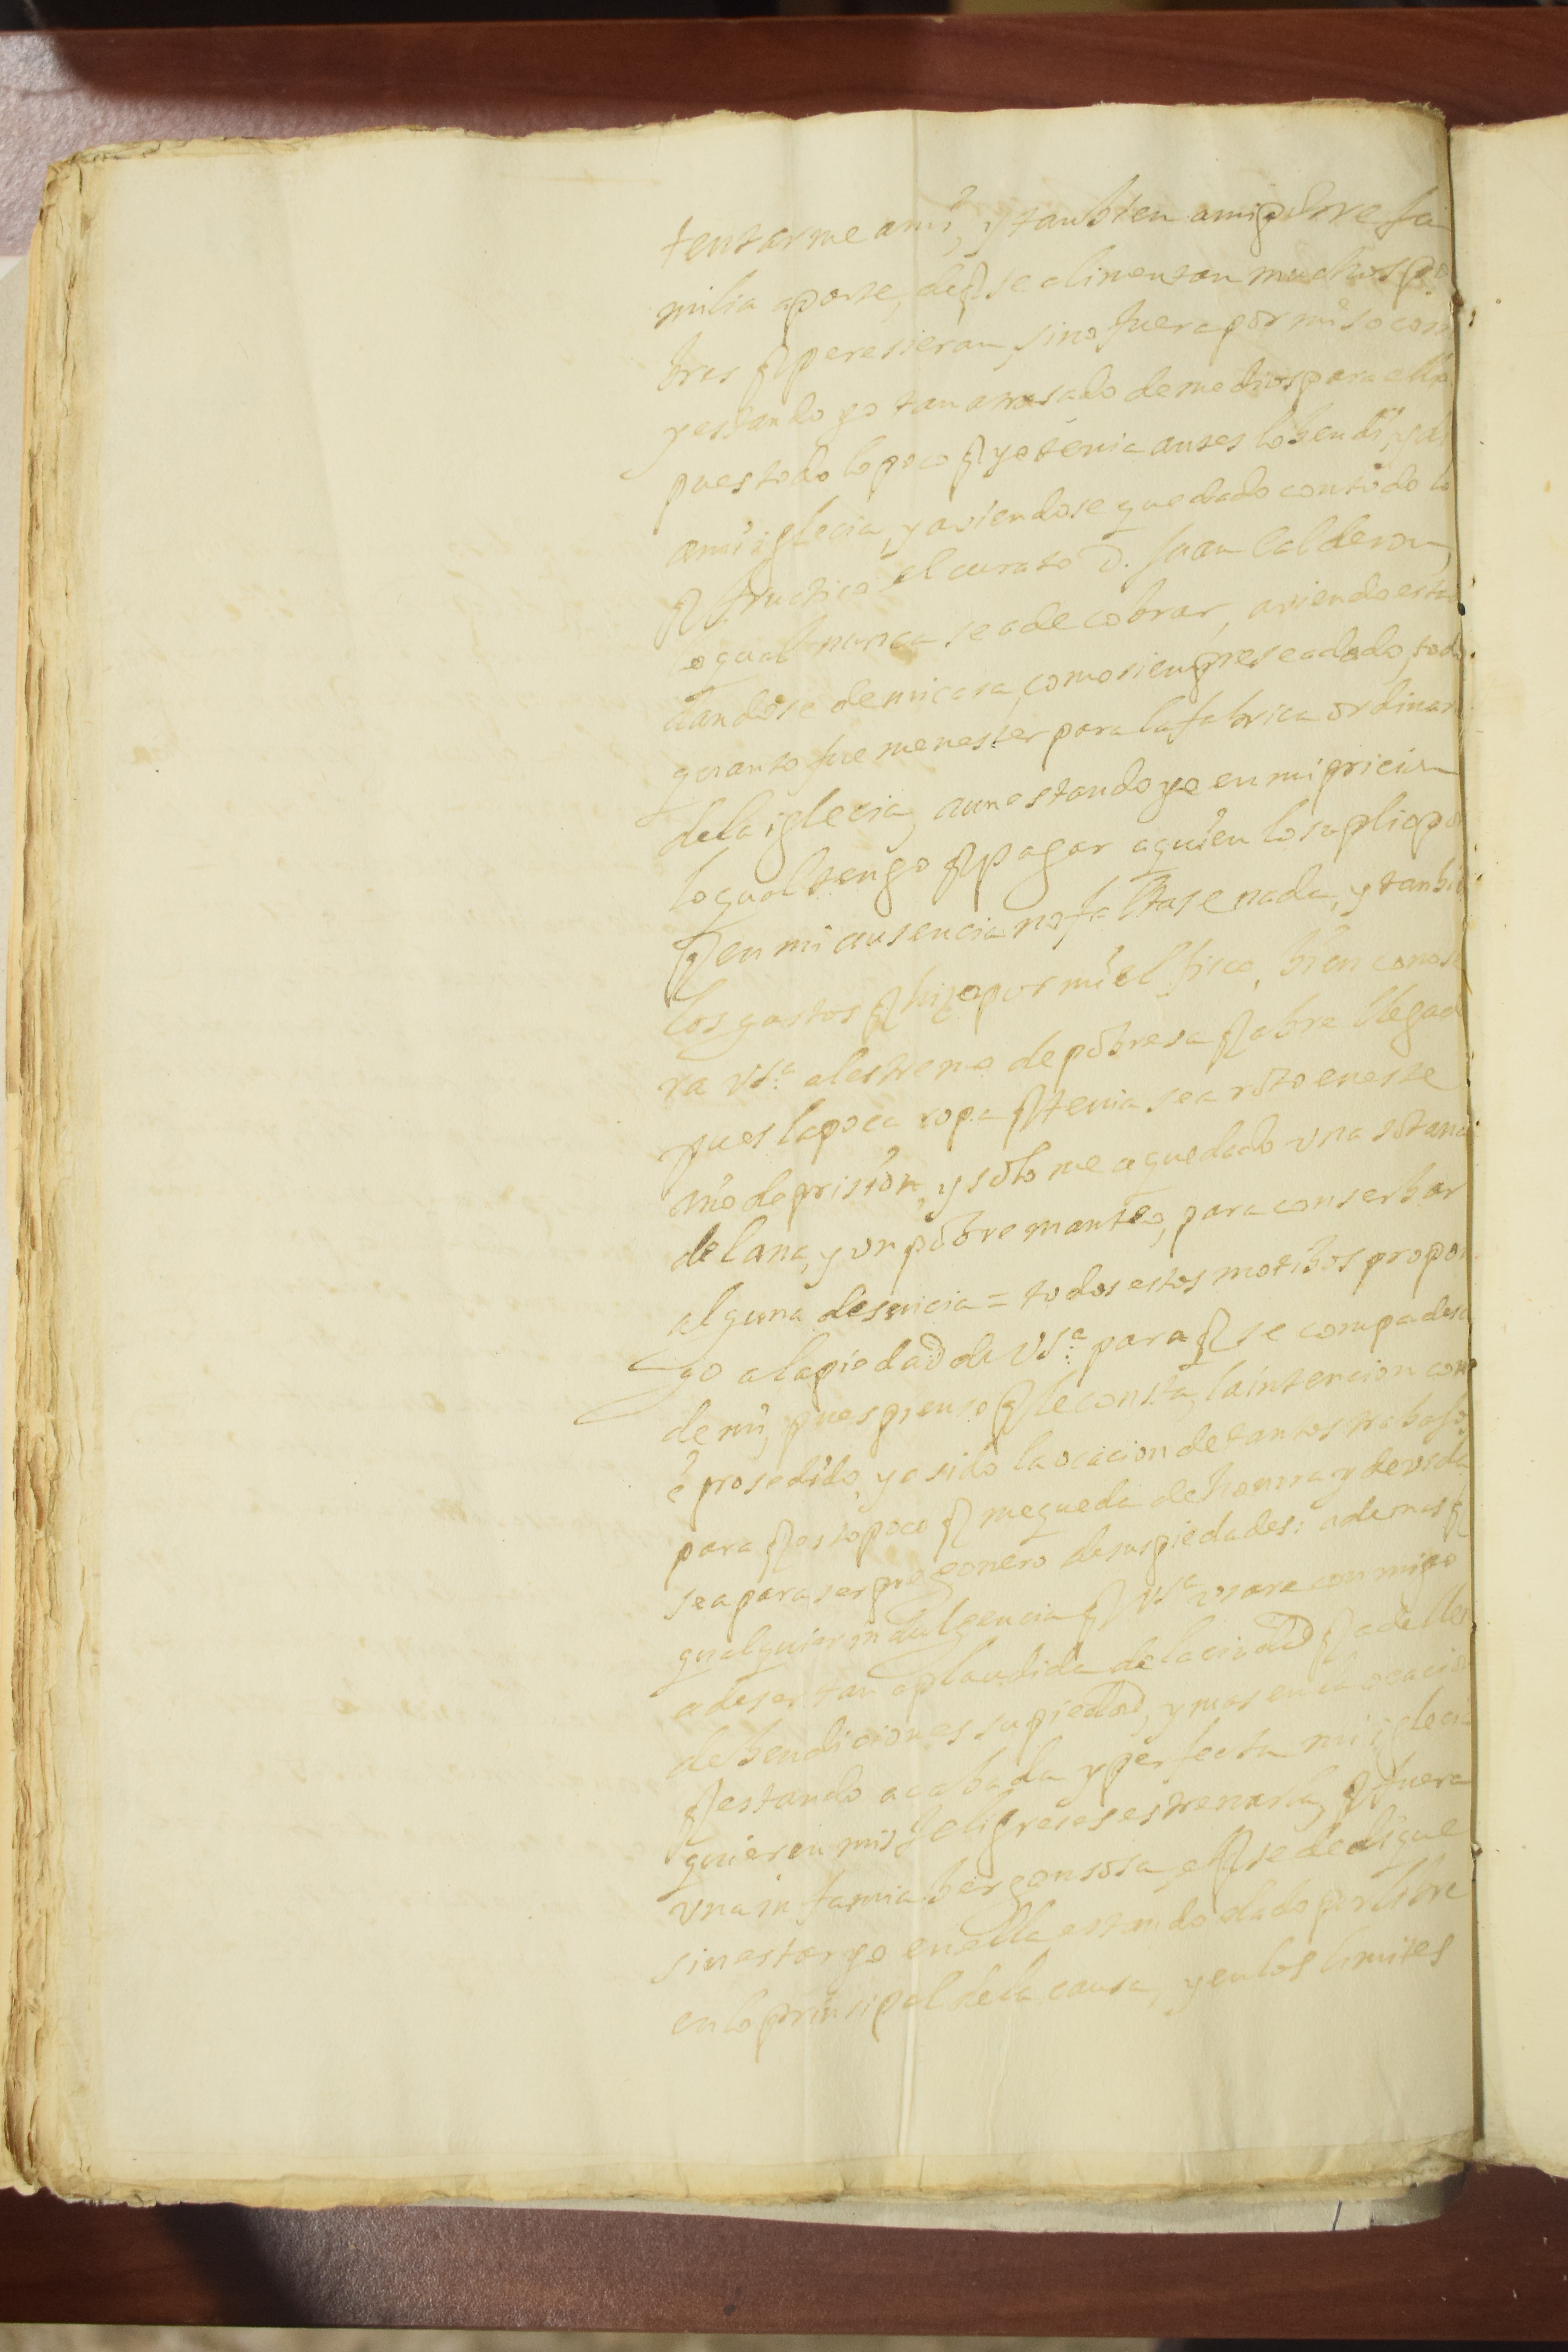 tentarme ami, y tanbien amipobre fa
milia aparte, deq̃ se alimentan muchos po
bres q̃ peresieran sino fuera por mi socorr
y estando yo tan atrasado de medios para ello
pues todo lo poco q̃ yo tenia antes lo bendi, y di
ami iglecia, y aviendose quedado con todo lo
q̃ fructico el curato D. Juan Calderon,
lo qual nunca se a de cobrar, aviendo esta
dandose de mi casa, como sienpre se a dado, todo
quanto fue menester para la fabrica ordinar
de la iglecia, aun estando yo en mi pricion
lo qual tengo q̃ pagar aquien lo suplio por
q̃ en mi ausencia no faltase nada, y tanbie
los gastos q̃ hizo por mi el fisco, bien conose
ra VSª. el estremo de pobresa q̃ abre llegad
pues la poca ropa q̃ tenia se a roto en este
año de prision, y solo me a quedado vna sotana
de lana, y vn pobre manteo, para conserbar
alguna desencia = todos estos motibos propon
go a la piedad de VSª. para q̃ se compadesca
de mi, pues pienso q̃ le consta, la intencion con q
e prosedido, y a sido la ocacion de tantos trabajos
para q̃ esto poco q̃ me queda de honrra y de vida
sea para ser pregonero de sus piedades: ademas q̃
qualquier indulgencia q̃ VSª vsare con migo
a de ser tan aplaudida de la ciudad q̃ a de llen
de bendiciones su piedad, y mas en la ocacio
q̃ estando acabada y perfecta mi iglecia
quieren mis feligreses estrenarla, q̃ fuera
vna infamia bergonsosa el q̃ se dedique
sin estar yo en ella estando dado por libre
en lo prinsipal de la causa, y en los limites